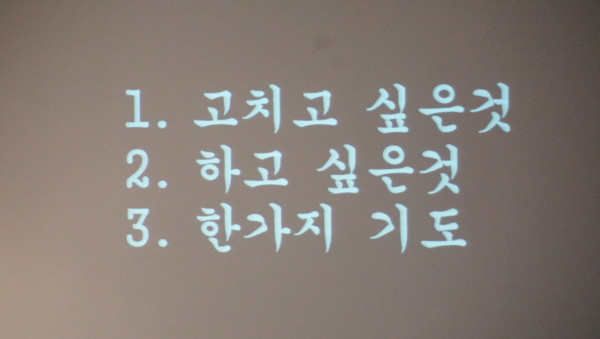 1. 고치고 싶은것
2. 하고 싶은것
3. 한가지 기도